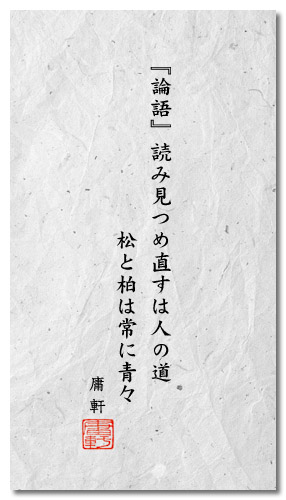 『論語』読み見つめ直すは人の道
松と柏は常に青々
庸軒